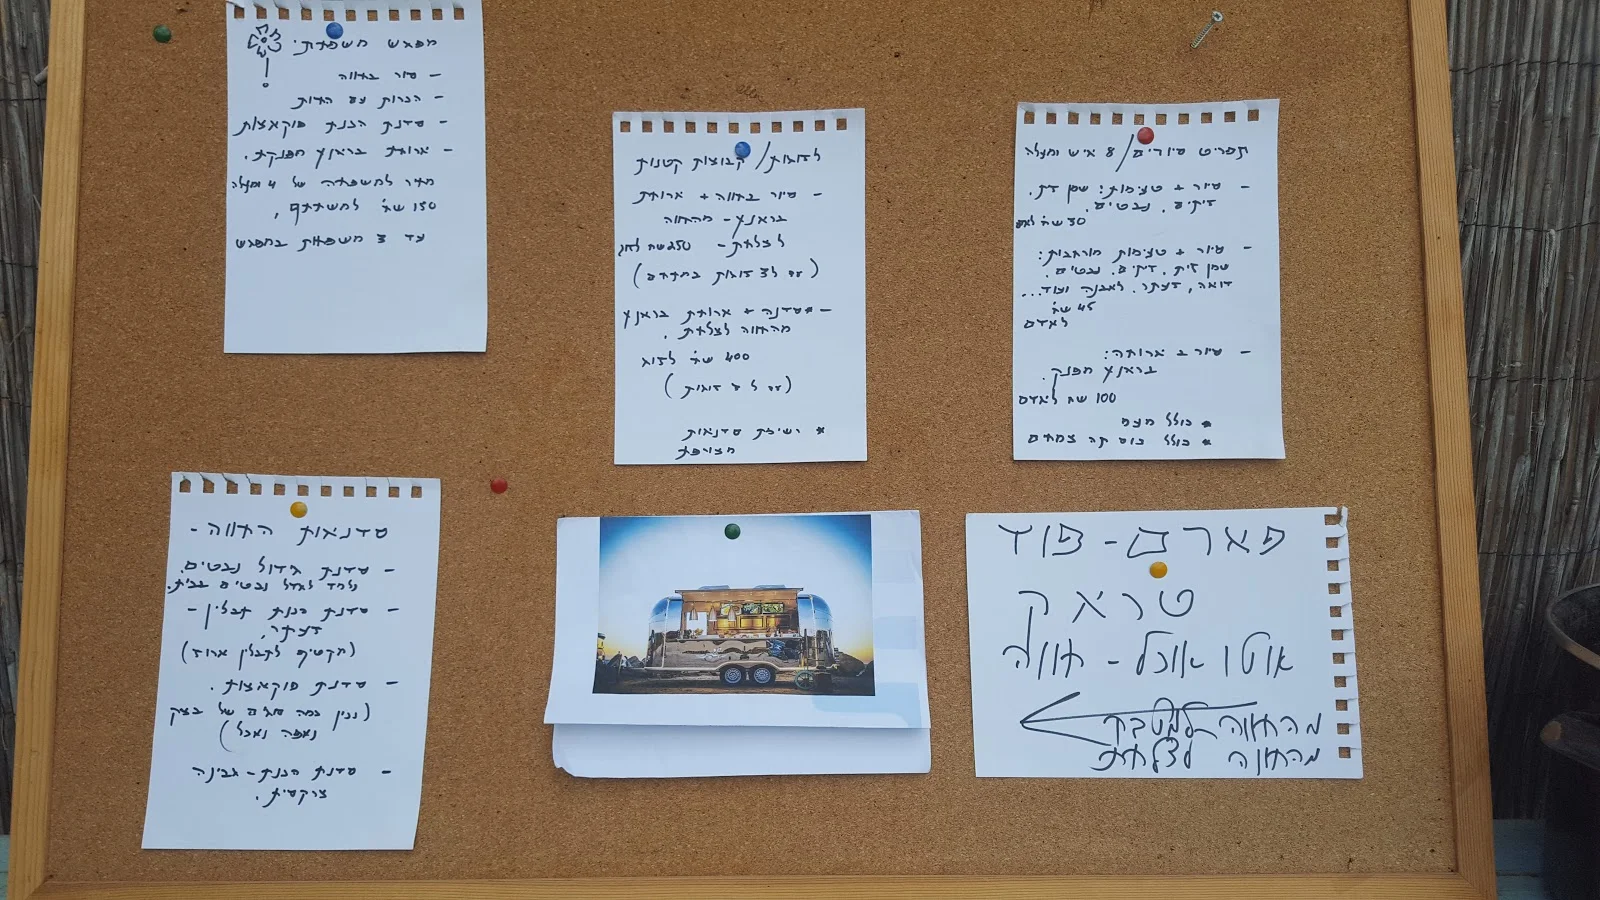 מפגש משפחתי:
- סיור בחווה
- הכרות עם החיות
- סדנת הכנת פוקאצות
- ארוחת בראנץ מפנקת.
מחיר למשפחה של 4 ומעלה
150 שח למשתתף,
עד 3 משפחות במפגש
לזוגות/קבוצות קטנות
- סיור בחווה + ארוחת
בראנץ - מהחווה
לצלחת - 250 שח לזוג
- *סדנה + ארוחת בראנץ
מהחווה לצלחת.
400 שח לזוג
* רשימת סדנאות
מצורפת
תפריט סיורים/8 איש ומעלה
- סיור + טעימות: שמן זית.
זיתים. נבטים.
30 שח לאדם
- סיור + טעימות מורחבות:
שמן זית. זיתים. נבטים.
זעתר. לאבנה ועוד...
45 שח
לאדם
- סיור ב ארוחה:
בראנץ מפנק.
100 שח לאדם
* כולל מצם
* כולל כוס תה צמחים
סדנאות החווה -
- סדנת גידול נבטים.
נלמד לגדל נבטים בבית.
- סדנת הכנת תבלין -
זעתר.
- סדנת פוקאצות.
(נכין כמה סוגים של בצק
נאפה ונאכל)
- סדנת הכנת - גבינה
צרפתית.
פארם - פוד
טראק
אוטו אוכל - חווה
מהחווה למטבח
מהחווה לצלחת